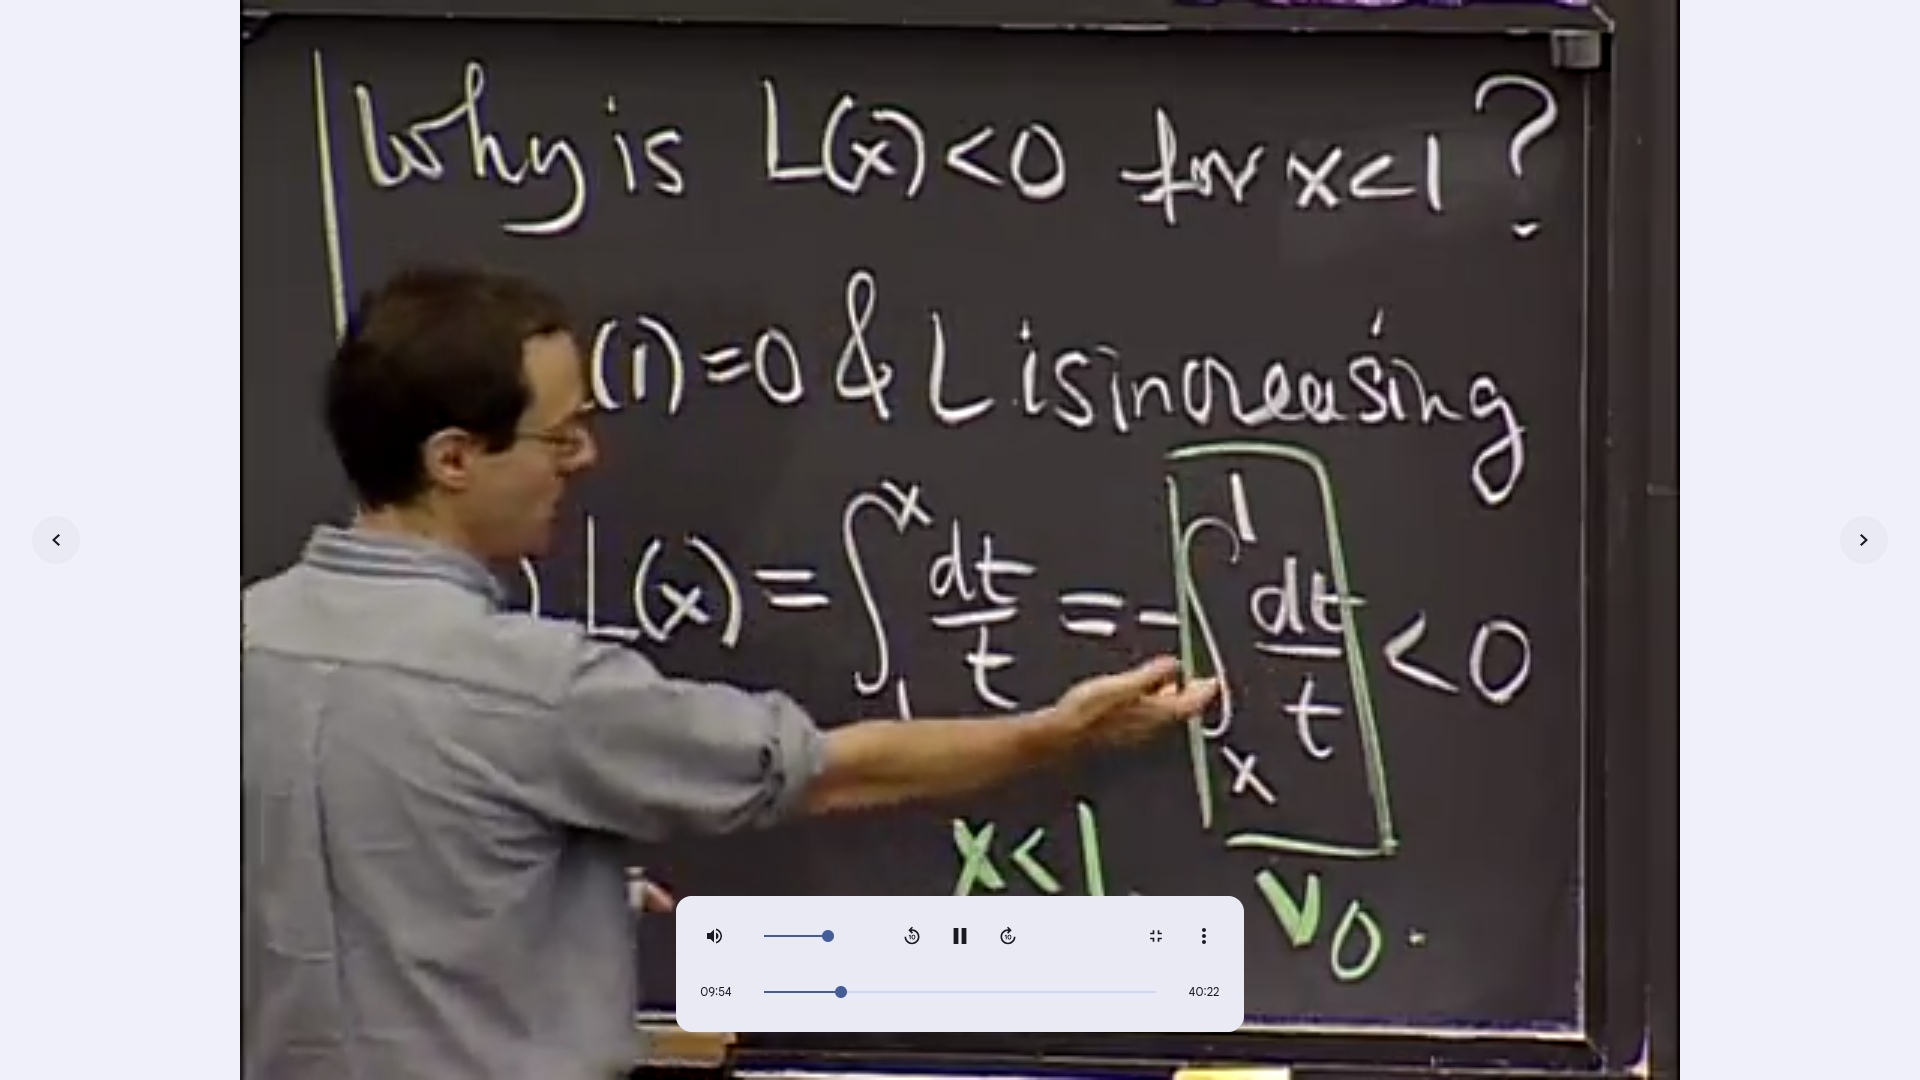 Why is L(x) < 0 for x < 1 ?
(1) = 0 & L is increasing
) L(x) = ∫₁ˣ dt/t = - ∫ₓ¹ dt/t < 0
x < 1
∨ 0
10 10
09:54 40:22